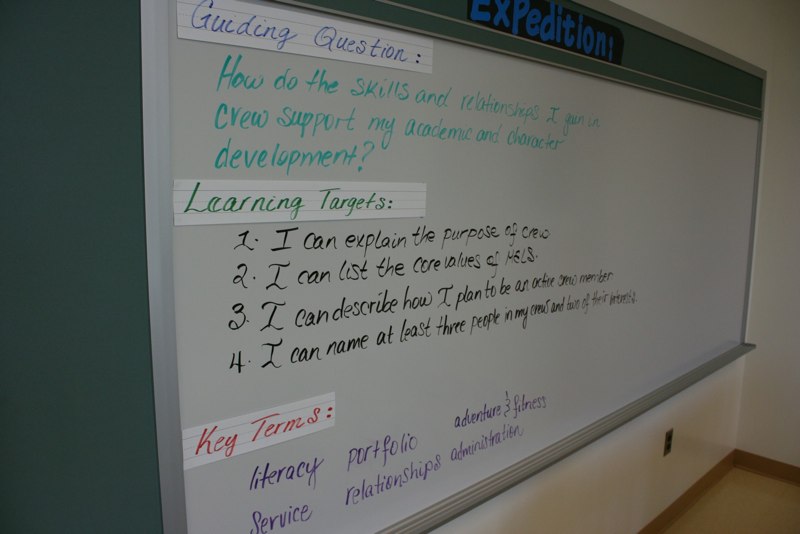 Expedition:
Guiding Question:
How do the skills and relationships I gain in
crew support my academic and character
development?
Learning Targets:
1. I can explain the purpose of crew
2. I can list the core values of HELS.
3. I can describe how I plan to be an active crew member
4. I can name at least three people in my crew and two of their interests.
Key Terms:
literacy portfolio adventure & fitness
service relationships administration